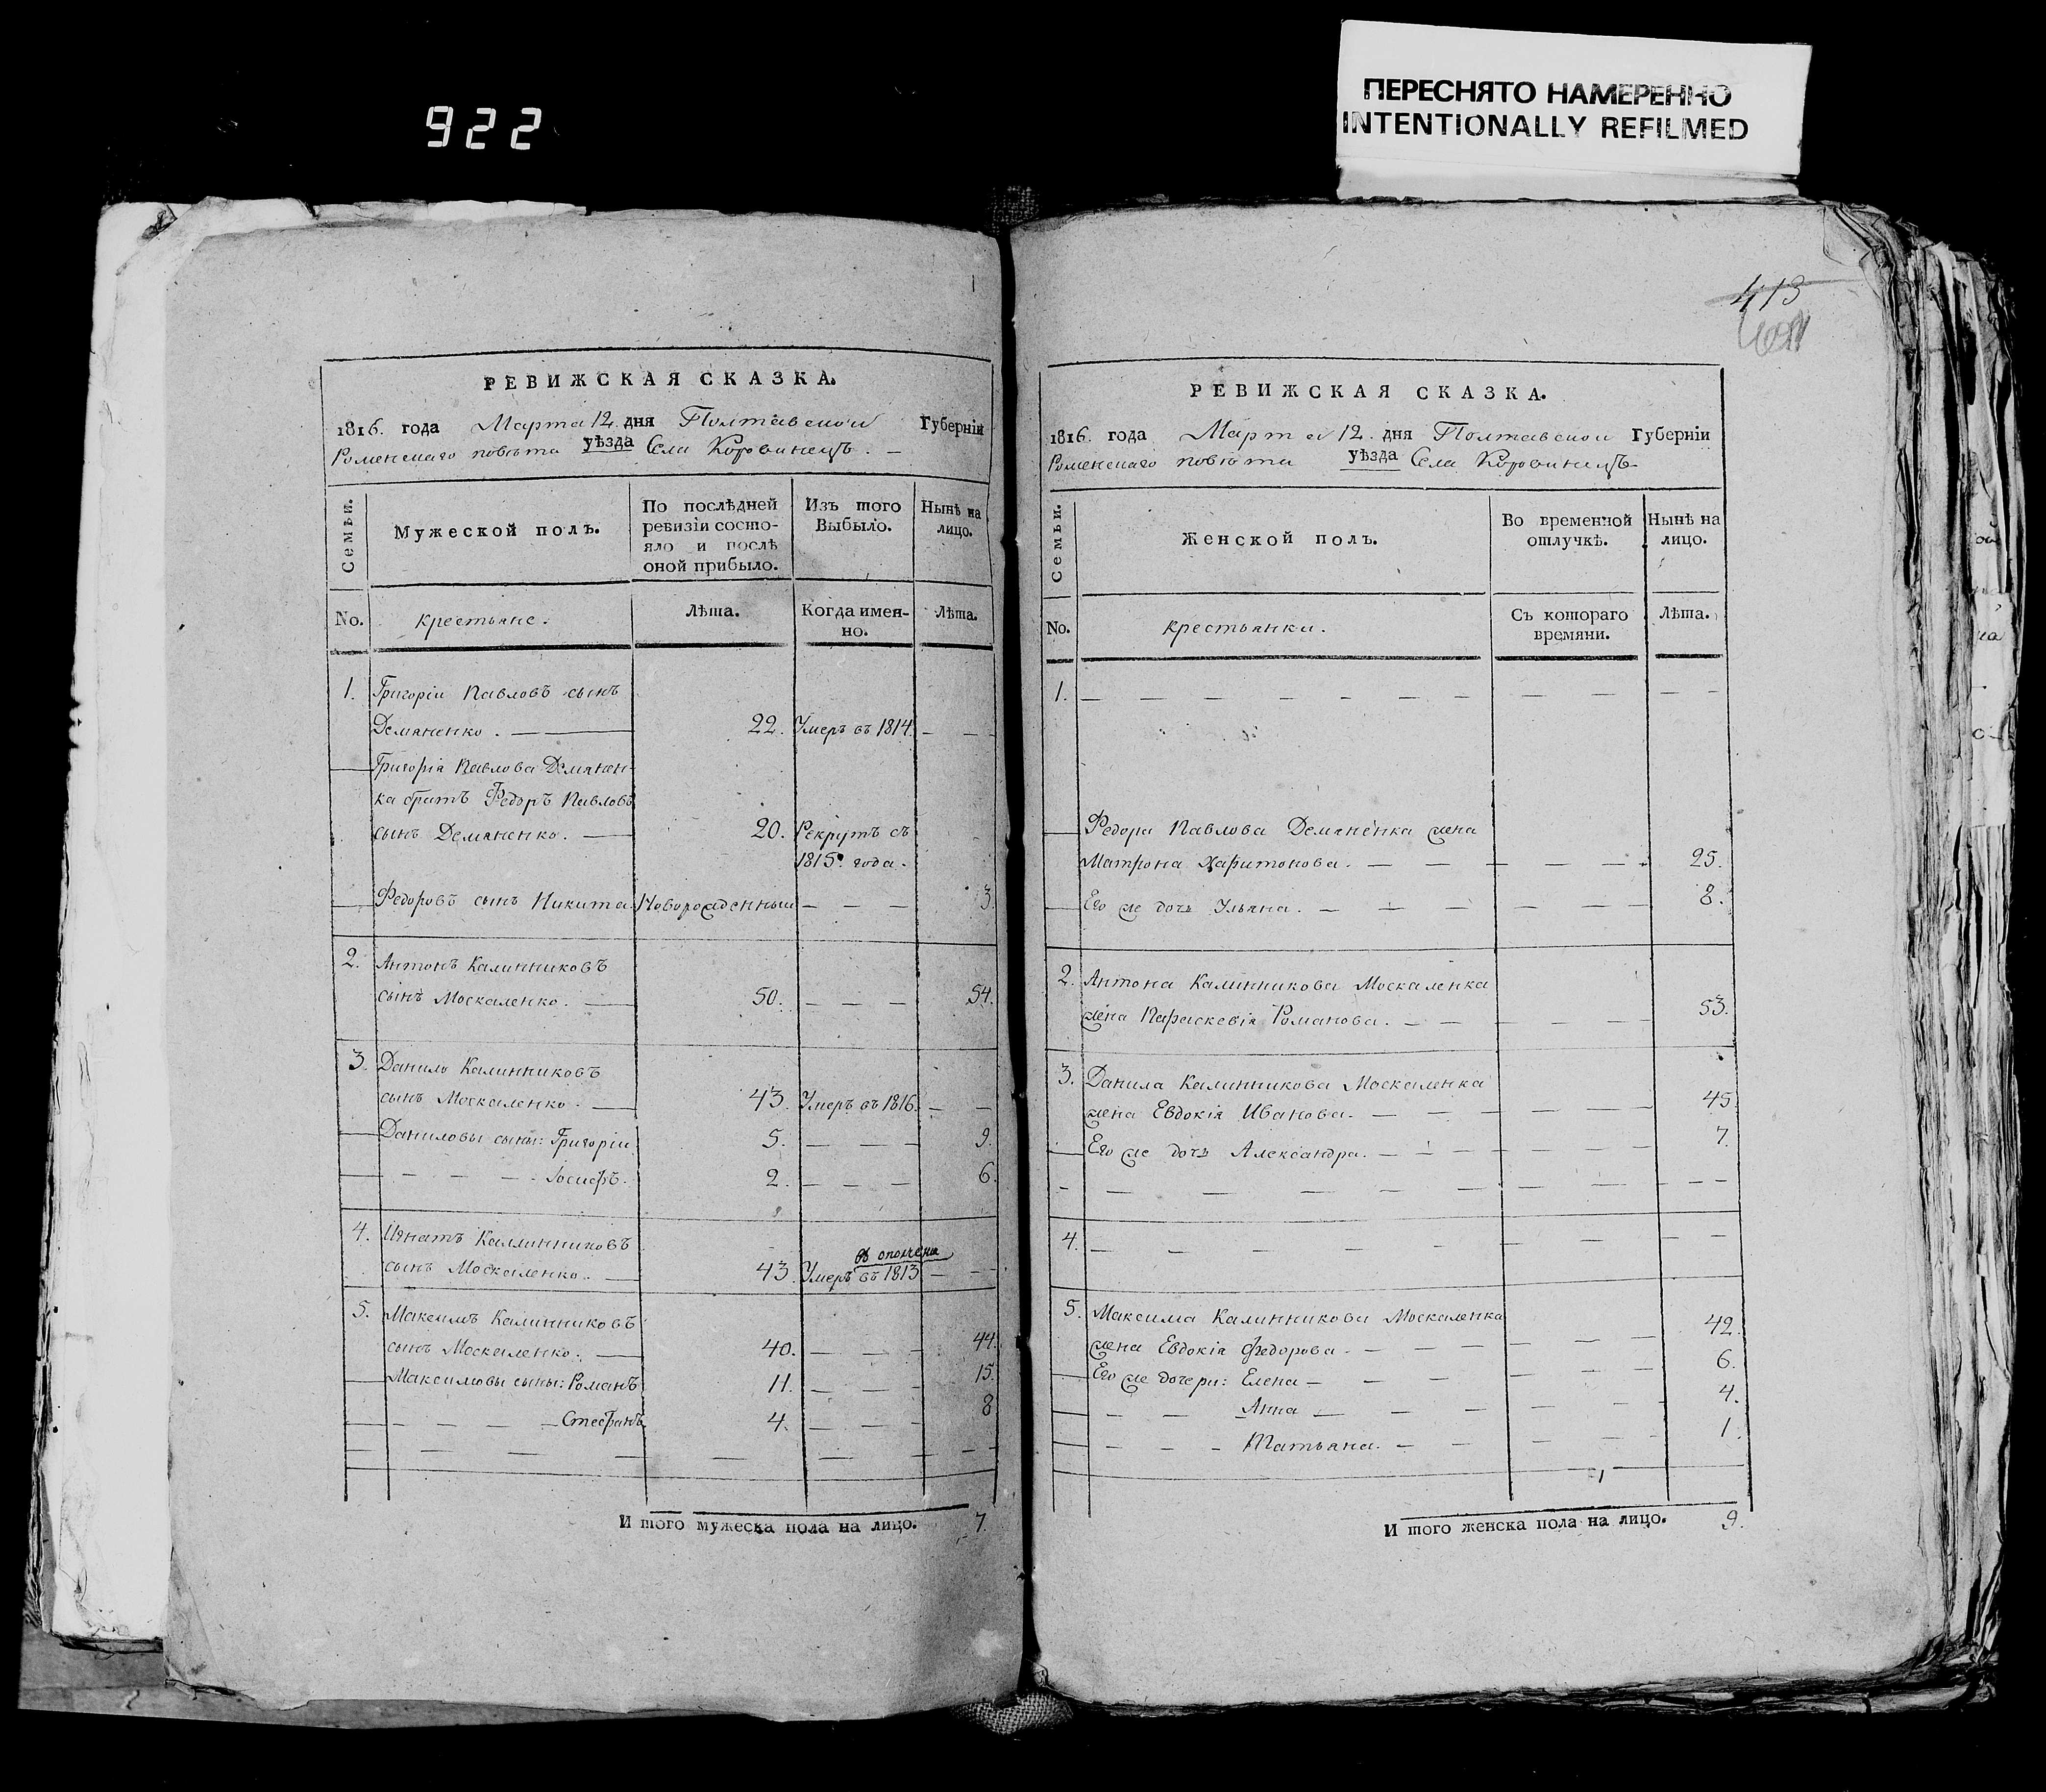 922
ПЕРЕСНЯТО НАМЕРЕННО
INTENTIONALLY REFILMED
РЕВИЖСКАЯ СКАЗКА.
1816. года Марта 12. дня Полтавской Губерніи
Роменскаго повѣта уѣзда Села Коровинецъ. —
Семьи.
Мужеской полъ.
По послѣдней
ревизіи состо-
яло и послѣ
оной прибыло.
Изъ того
Выбыло.
Нынѣ на
лицо.
No.
крестьяне.
Лѣта.
Когда имен-
но.
Лѣта.
1. Григоріи Павловъ сынъ
Демяненко. — 22. Умеръ въ 1814. — — —
Григорія Павлова Демянен-
ка братъ Федоръ Павловъ
сынъ Демяненко. — 20. Рекрутъ съ
1815. года.
Федоровъ сынъ Никита. Новорожденный — — — 3.
2. Антонъ Калинниковъ
сынъ Москаленко. — 50. — — — 54.
3. Данило Калинниковъ
сынъ Москаленко. — 43. Умеръ въ 1816. — —
Даниловы сыны: Григоріи 5. — — — 9.
— — — Іосифъ. 2. — — — 6.
4. Игнатъ Калинниковъ
въ ополчени
сынъ Москаленко. — 43. Умеръ въ 1813 — — —
5. Максимъ Калинниковъ
сынъ Москаленко. — 40. — — — 44.
Максимовы сыны: Романъ 11. — — — 15.
— — — Стефанъ 4. — — — 8
И того мужеска пола на лицо. 7.
413
РЕВИЖСКАЯ СКАЗКА.
1816. года Марта 12. дня Полтавской Губерніи
Роменскаго повѣта уѣзда Села Коровинецъ
Семьи.
Женской полъ.
Во временной
отлучкѣ.
Нынѣ на
лицо.
No.
крестьянки.
Съ котораго
времяни.
Лѣта.
1. — — — — — — — — — — —
Федора Павлова Демяненка жена
Матрона Харитонова. — — — — — 25.
Его же дочь Ульяна. — — — — — — 8.
2. Антона Калинникова Москаленка
жена Параскевія Романова. — — — — — 53.
3. Данила Калинникова Москаленка
жена Евдокія Иванова. — — — — — — 45
Его же дочь Александра. — — — — — — 7.
4. — — — — — — — — — — —
5. Максима Калинникова Москаленка
жена Евдокія Федорова — — — — — — 42.
Его же дочери: Елена — — — — — — 6.
— — Анна — — — — — — 4.
— — — Татьяна. — — — — — 1.
И того женска пола на лицо. 9.